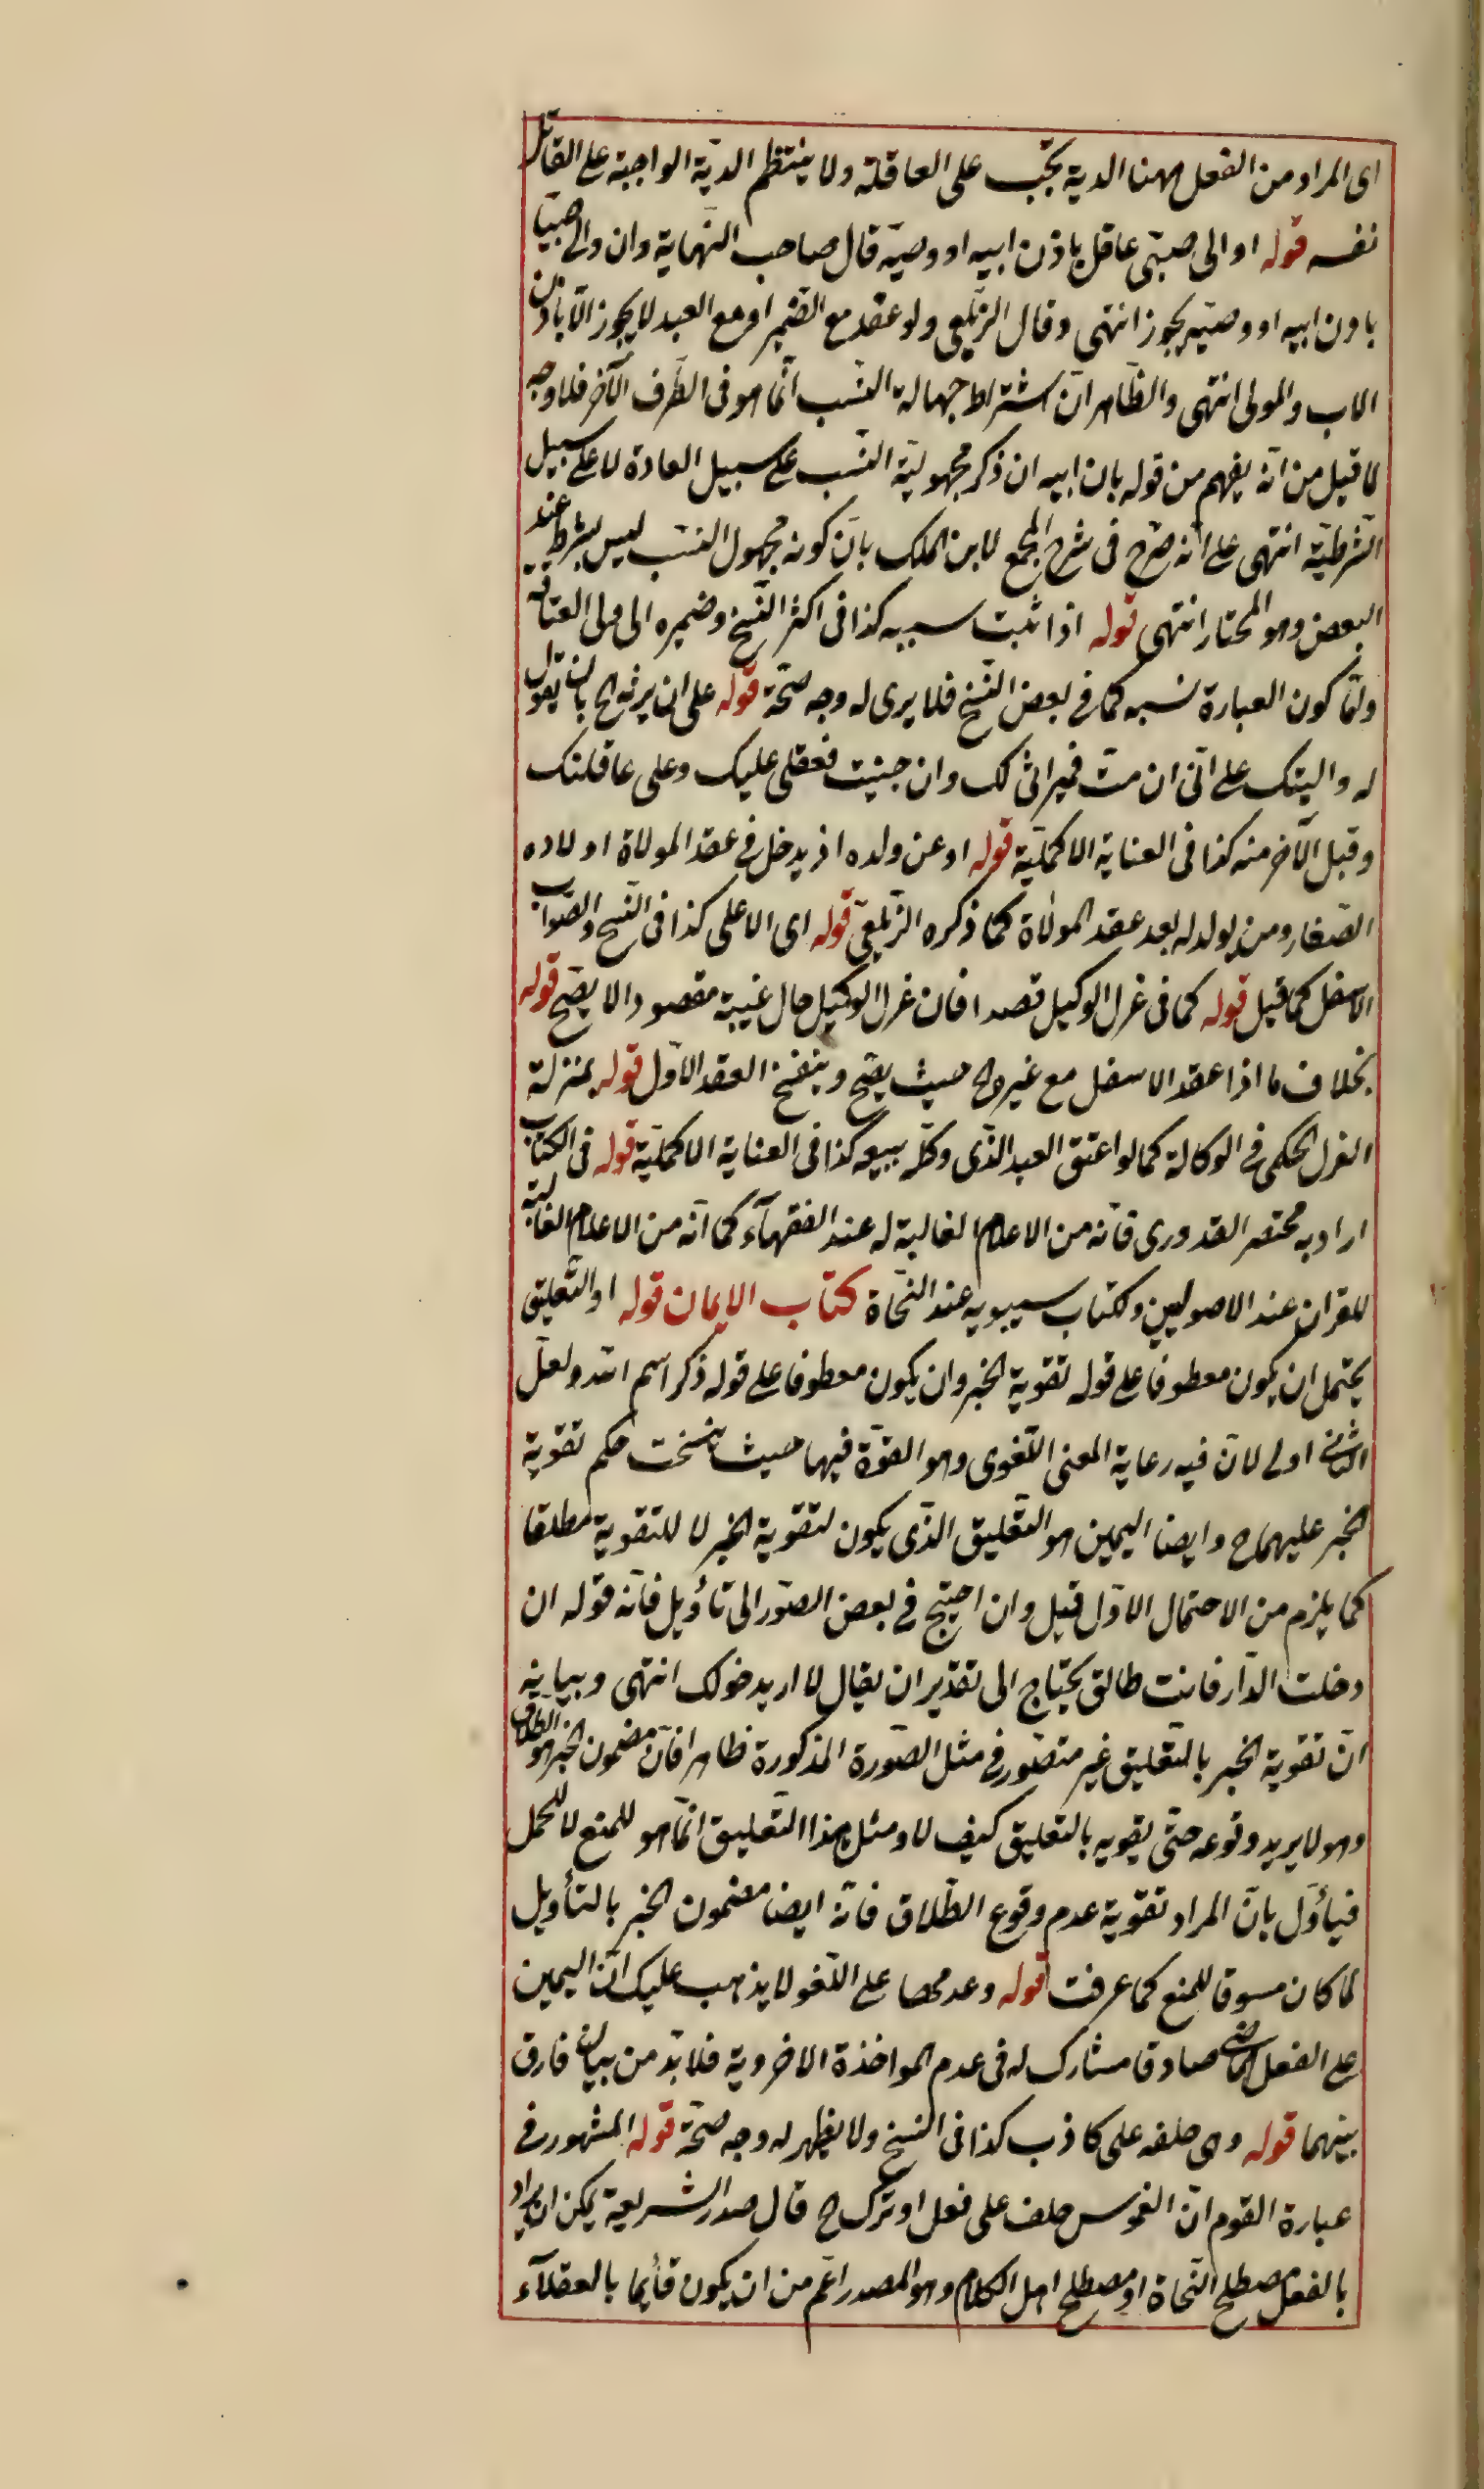 اى المراد من الفعل ههنا الدية يجب على العاقلة ولا ينتظم الدية الواجبة على القاتل
نفسه قوله او الى صبى عاقل باذن ابيه او وصيه قال صاحب النهاية وان والى صبيا
باذن ابيه او وصيه يجوز انتهى وقال الزيلعى ولو عقد مع الصغير او مع العبد لا يجوز الا باذن
الاب والمولى انتهى والظاهر ان اشتراط جهالة النسب انما هو فى الطرف الآخر فلا وجه
لما قيل من انه يفهم من قوله باذن ابيه ان ذكر مجهولية النسب على سبيل العادة لا على سبيل
الشرطية انتهى على انه صرح فى شرح المجمع لابن الملك بان كونه مجهول النسب ليس بشرط عند
البعض وهو المختار انتهى قوله اذا ثبت سببه كذا فى اكثر النسخ وضميره الى ولى العتاقه
واما كون العبارة نسبه كما فى بعض النسخ فلا يرى له وجه صحة قوله على ان يرثه الخ بان يقول
له واليتك على انى ان مت فميراثى لك وان جنيت فعقلى عليك وعلى عاقلتك
وقبل الآخر منه كذا فى العناية الاكملية قوله او عن ولده اذ يدخل فى عقد الموالاة اولاده
الصغار ومن يولد له بعد عقد الموالاة كما ذكره الزيلعى قوله اى الاعلى كذا فى النسخ والصواب
الاسفل كما قيل قوله كما فى عزل الوكيل قصدا فان عزل الوكيل حال غيبته مقصودا لا يصح قوله
بخلاف ما اذا عقد الاسفل مع غيره الخ حيث يصح وينفسخ العقد الاول قوله بمنزلة
العزل الحكمى فى الوكالة كما لو اعتق العبد الذى وكله ببيعه كذا فى العناية الاكملية قوله فى الكتاب
اراد به مختصر القدورى فانه من الاعلام الغالبة له عند الفقهآء كما انه من الاعلام الغالبة
للقران عند الاصوليين ولكتاب سيبويه عند النحاة كتاب الايمان قوله او التعليق
يحتمل ان يكون معطوفا على قوله تقوية الخبر وان يكون معطوفا على قوله ذكر اسم الله ولعل
الثانى اولى لان فيه رعاية المعنى اللغوى وهو القوة فيهما حيث ينسحب حكم تقوية
الخبر عليهما ح وايضا اليمين هو التعليق الذى يكون لتقوية الخبر لا للتقوية مطلقا
كما يلزم من الاحتمال الاول قيل وان احتيج فى بعض الصور الى تأويل فانه قوله ان
دخلت الدار فانت طالق يحتاج الى تقدير ان يقال لا اريد دخولك انتهى وبيانه
ان تقوية الخبر بالتعليق غير متصور فى مثل الصورة المذكورة ظاهرا فان مضمون الخبر هو الطلاق
وهو لا يريد وقوعه حتى يقويه بالتعليق كيف لا ومثل هذا التعليق انما هو للمنع لا للحمل
فيأول بان المراد تقوية عدم وقوع الطلاق فانه ايضا مضمون الخبر بالتأويل
لما كان مسوقا للمنع كما عرفت قوله وعدمها على اللغو لا يذهب عليك ان اليمين
على الفعل الماضى صادقا مشارك له فى عدم المواخذة الاخروية فلا بد من بيان فارق
بينهما قوله وهى حلفه على كاذب كذا فى النسخ ولا يظهر له وجه صحة قوله المشهور فى
عبارة القوم ان الغموس حلف على فعل او ترك الخ قال صدر الشريعة يمكن ان يراد
بالفعل مصطلح النحاة او مصطلح اهل الكلام وهو المصدر اعم من ان يكون قائما بالعقلآء